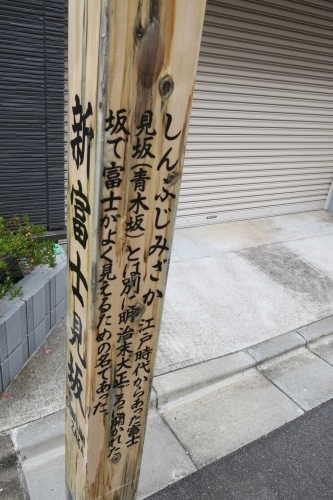 新富士見坂
しんふじみざか
江戸時代からあった富士
見坂(青木坂)とは別に明治末大正ころ開かれた
坂で富士がよく見えるための名であった。